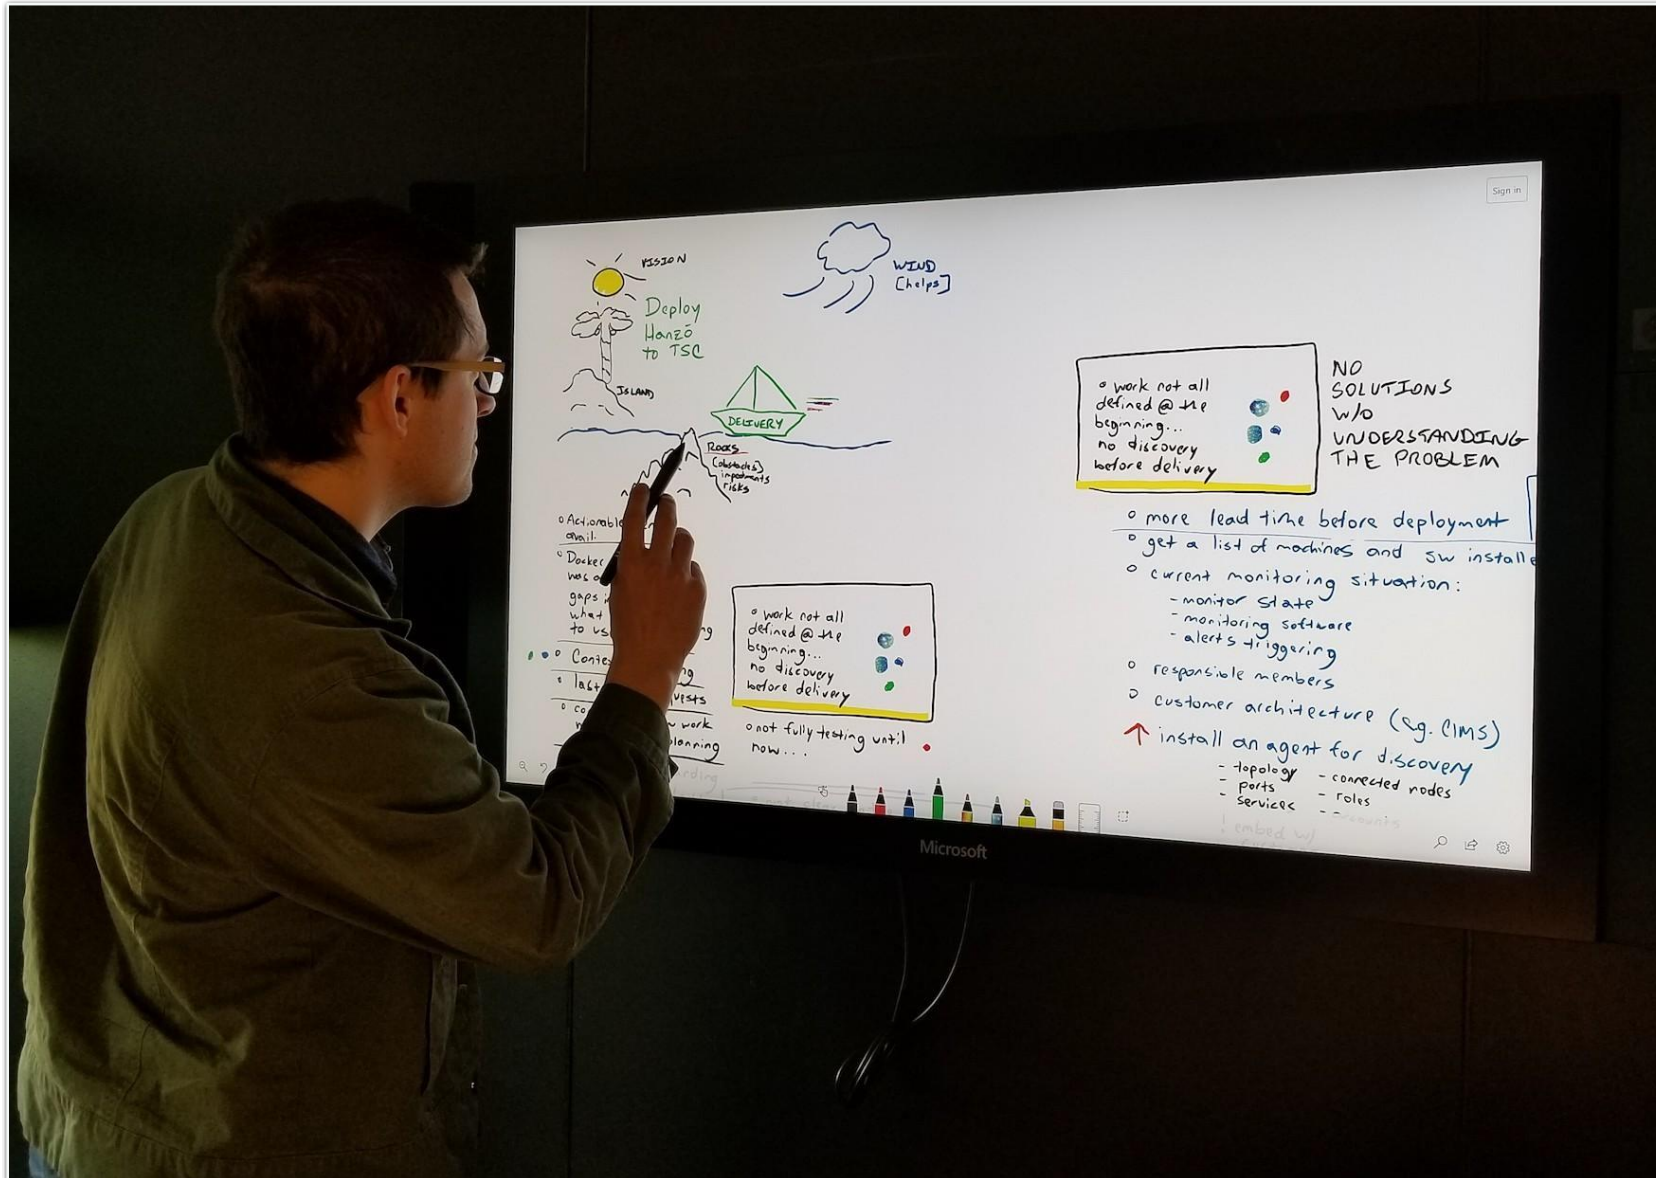 Sign in
VISION
WIND
[helps]
Deploy
Hanzō
to TSC
ISLAND
DELIVERY
ROCKS
[obstacles]
impediments
risks
o Actionable
avail.
o Docker
was
gaps
what
to
o
o last
o
work
planning
o work not all
defined @ the
beginning...
no discovery
before delivery
o not fully testing until
now...
o work not all
defined @ the
beginning...
no discovery
before delivery
NO
SOLUTIONS
W/O
UNDERSTANDING
THE PROBLEM
o more lead time before deployment
o get a list of machines and sw installe
o current monitoring situation:
- monitor state
- monitoring software
- alerts triggering
o responsible members
o customer architecture (eg. CIMS)
↑ install an agent for discovery
- topology - connected nodes
- ports - roles
- services - -
! embed w/
Microsoft